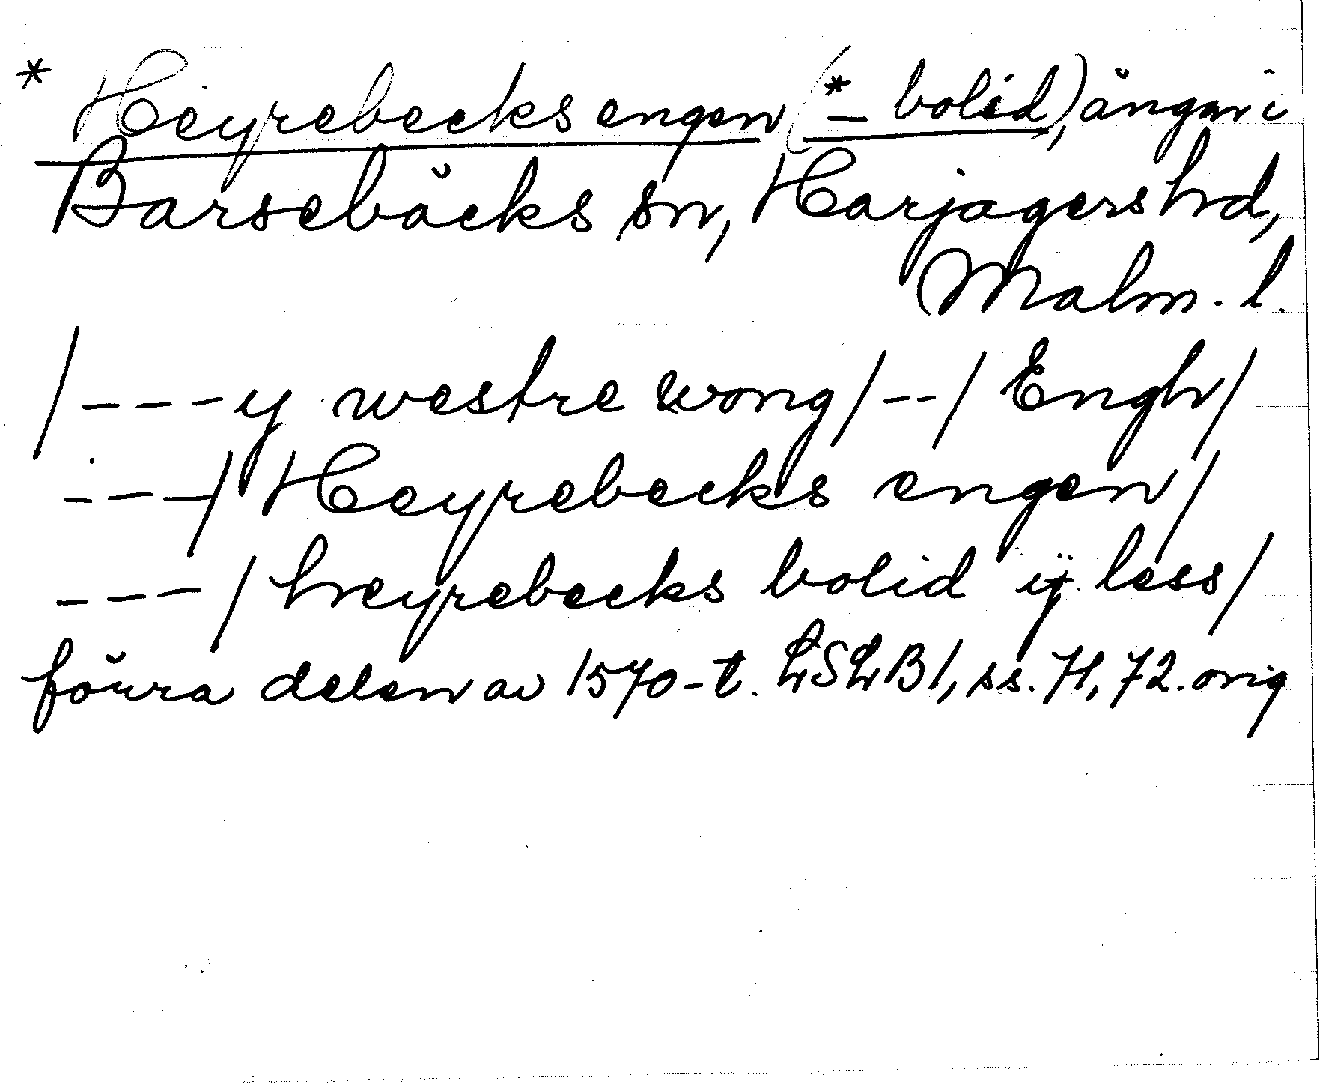 * Heyrebecks engen (*– bolid), ängar i
Barsebäcks sn, Harjagers hd,
Malm. l.
/---y westre wong/--/ Engh/
---/ Heyrebecks engen/
---/ heyrebecks bolid ij less/
förra delen av 1570-t. LSLB1, ss. 71, 72. orig